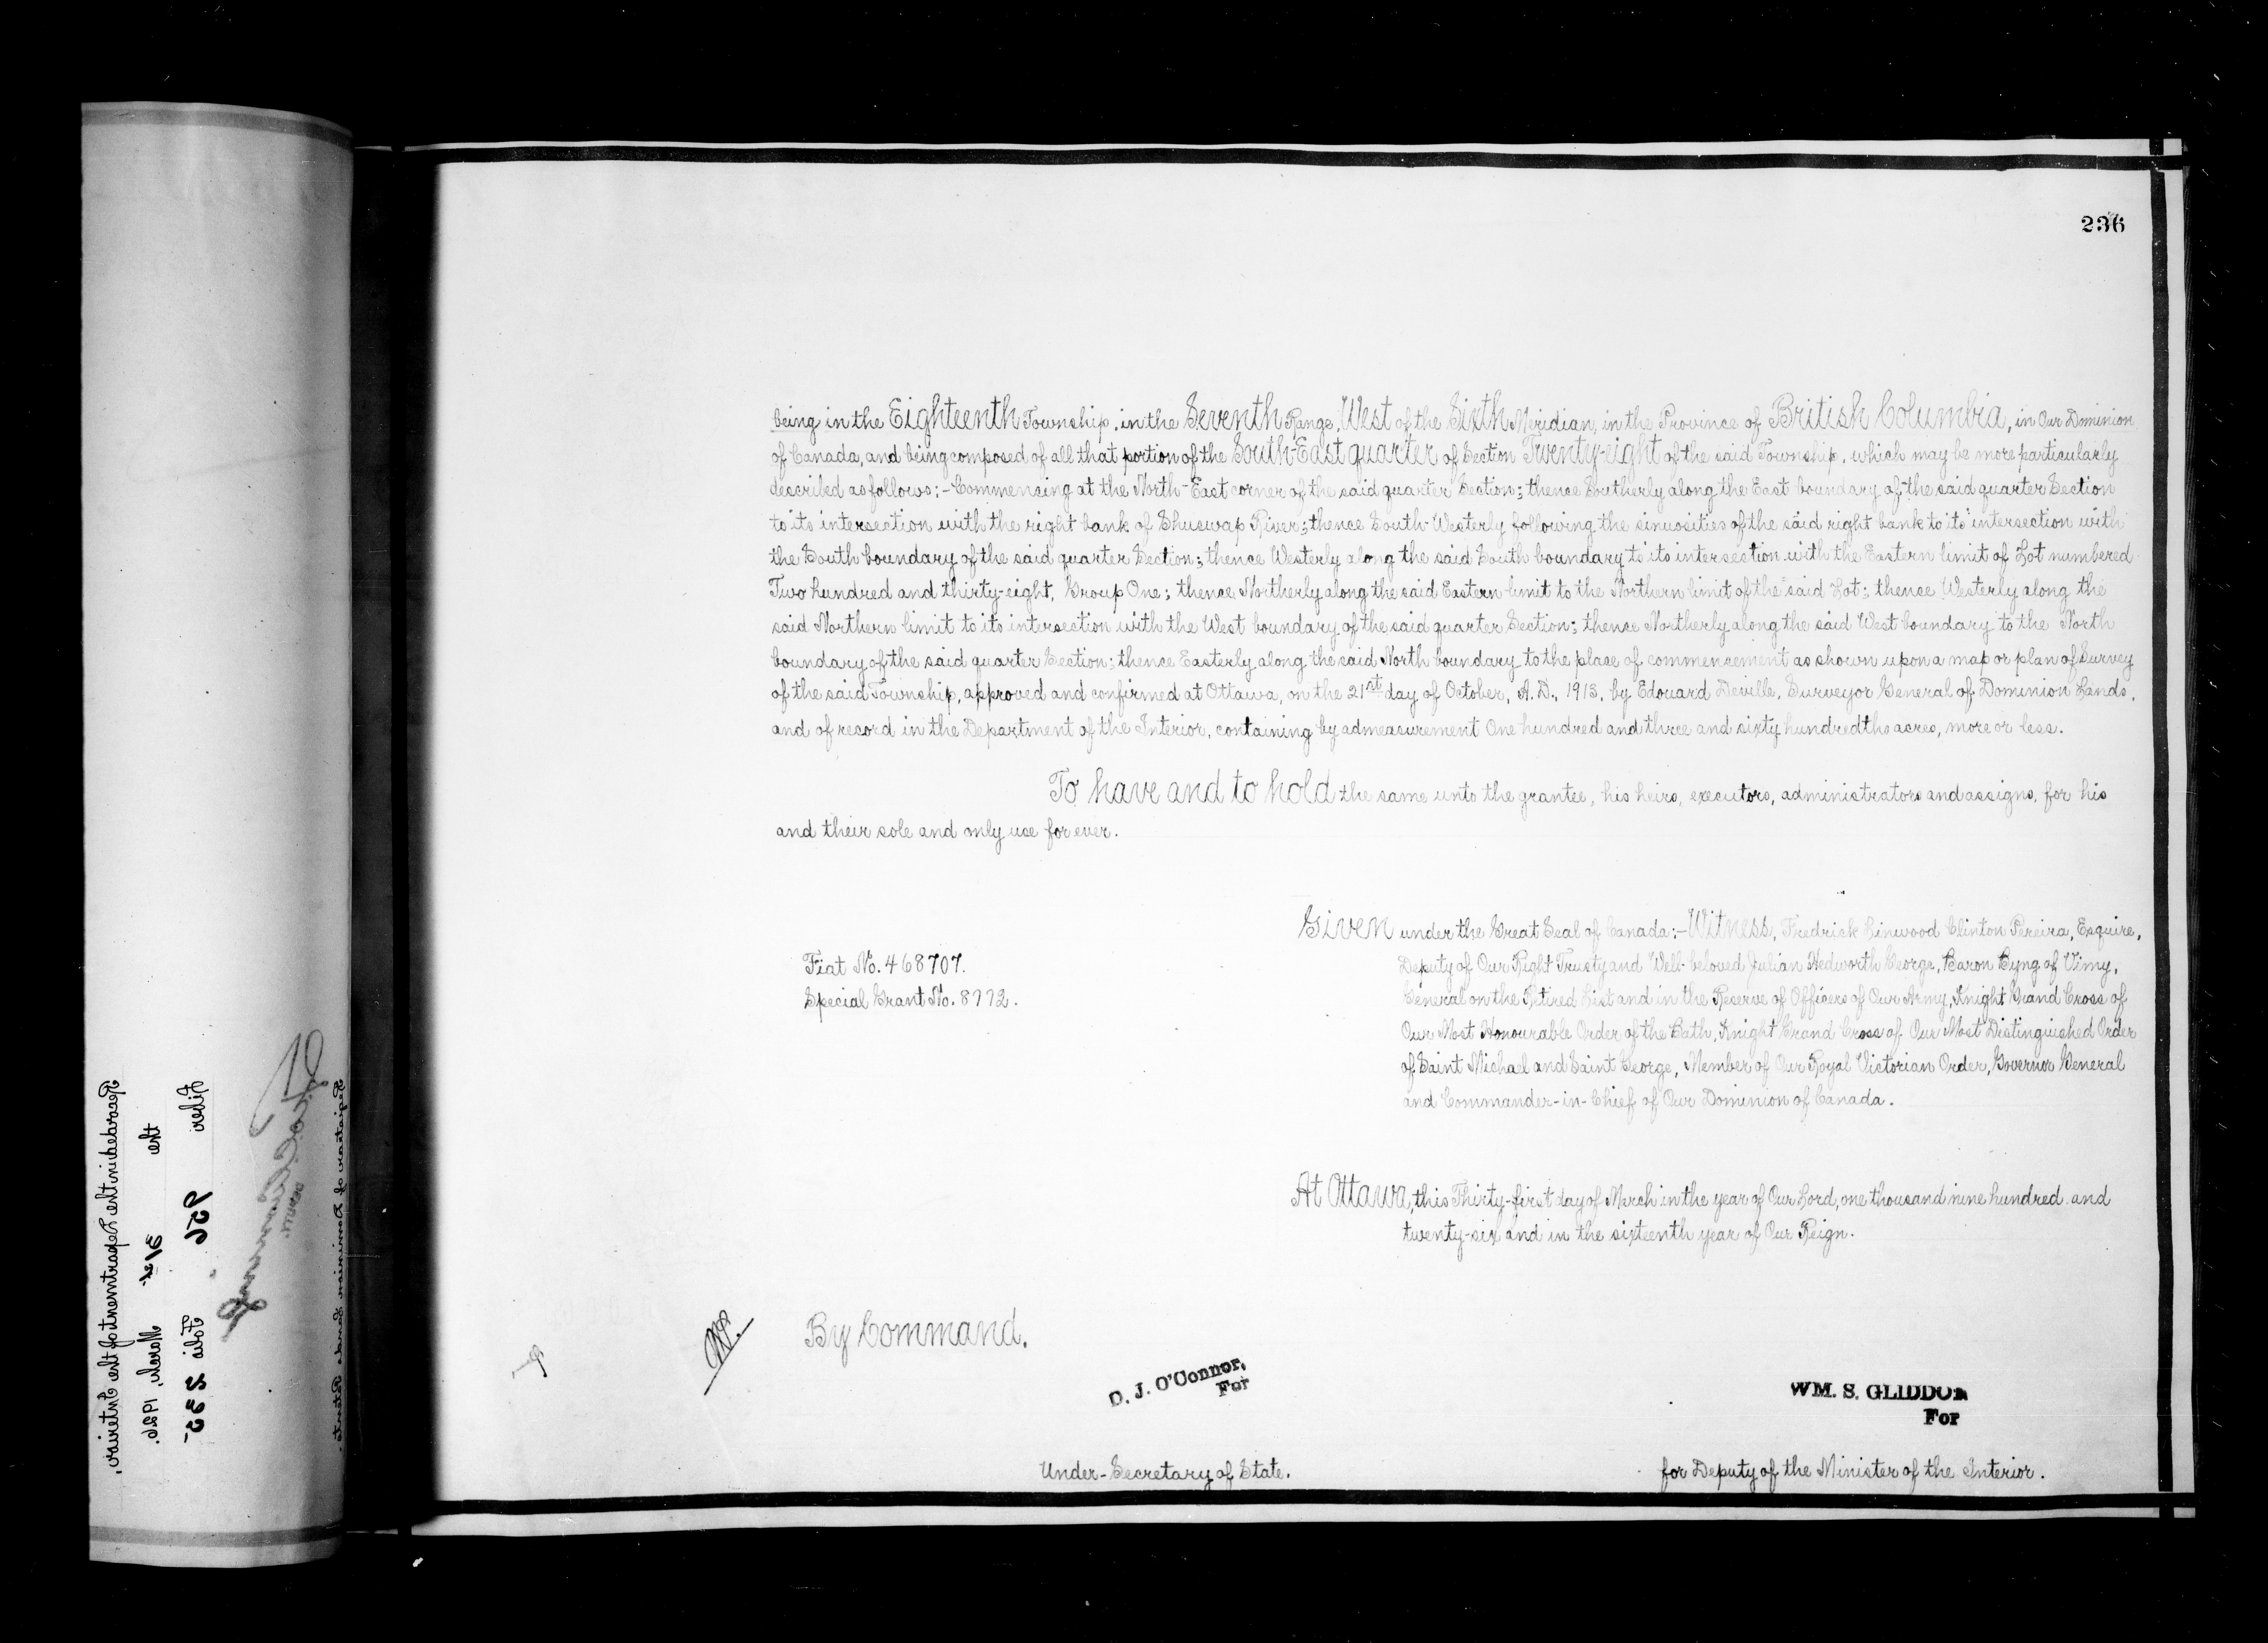 236
being in the Eighteenth Township, in the Seventh Range, West of the Sixth Meridian, in the Province of British Columbia, in Our Dominion
of Canada, and being composed of all that portion of the South-East quarter of Section Twenty-eight of the said Township, which may be more particularly
described as follows:- Commencing at the North-East corner of the said quarter Section; thence Southerly along the East boundary of the said quarter Section
to its intersection with the right bank of Shuswap River; thence South-Westerly following the sinuosities of the said right bank to its intersection with
the South boundary of the said quarter Section; thence Westerly along the said South boundary to its intersection with the Eastern limit of Lot numbered
Two hundred and thirty-eight, Group One; thence Northerly along the said Eastern limit to the Northern limit of the said Lot; thence Westerly along the
said Northern limit to its intersection with the West boundary of the said quarter Section; thence Northerly along the said West boundary to the North
boundary of the said quarter Section; thence Easterly along the said North boundary to the place of commencement as shown upon a map or plan of Survey
of the said Township, approved and confirmed at Ottawa, on the 21st day of October, A.D., 1913, by Edouard Deville, Surveyor General of Dominion Lands,
and of record in the Department of the Interior, containing by admeasurement One hundred and three and sixty hundredths acres, more or less.
To have and to hold the same unto the grantee, his heirs, executors, administrators and assigns, for his
and their sole and only use for ever.
Given under the Great Seal of Canada:- Witness, Fredrick Linwood Clinton Pereira, Esquire,
Deputy of Our Right Trusty and Well-beloved Julian Hedworth George, Baron Byng of Vimy,
General on the Retired List and in the Reserve of Officers of Our Army, Knight Grand Cross of
Our Most Honourable Order of the Bath, Knight Grand Cross of Our Most Distinguished Order
of Saint Michael and Saint George, Member of Our Royal Victorian Order, Governor General
and Commander-in-Chief of Our Dominion of Canada.
Fiat No. 468707.
Special Grant No. 8772.
At Ottawa, this Thirty-first day of March in the year of Our Lord, one thousand nine hundred and
twenty-six and in the sixteenth year of Our Reign.
By Command.
D. J. O'Connor,
For
Under-Secretary of State.
WM. S. GLIDDON
For
for Deputy of the Minister of the Interior.
Recorded in the Department of the Interior,
the 31st March, 1926.
Liber 956 Folio 235-
Registrar of Dominion Lands Patents.